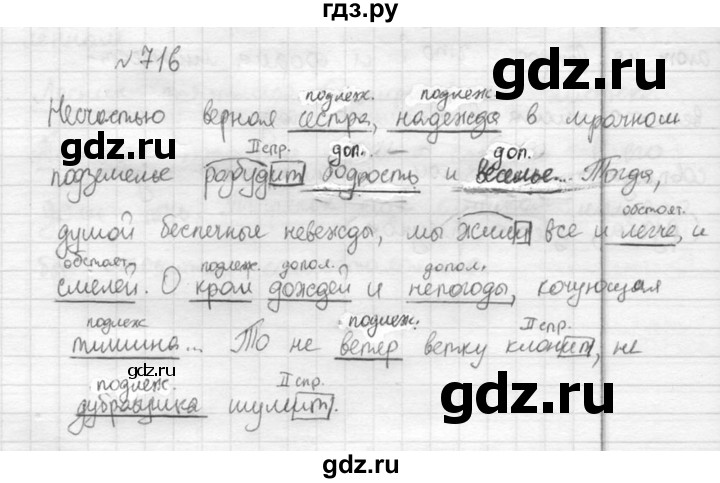 гдз.ру
№716
подлеж. подлеж.
Несчастью верная сестра, надежда в мрачном
II спр. доп. доп.
подземелье разбудит бодрость и веселье... Тогда,
душой беспечные невежды, мы жили все и легче, и
обстоят.
обстоят. подлеж. допол. допол.
смелей. О край дождей и непогоды, кочующая
подлеж подлеж. II спр.
тишина... То не ветер ветку клонит, не
подлеж. II спр.
дубравушка шумит.
gdz.ru
gdz.ru
gdz.ru
gdz.ru
gdz.ru
gdz.ru
gdz.ru
gdz.ru
gdz.ru